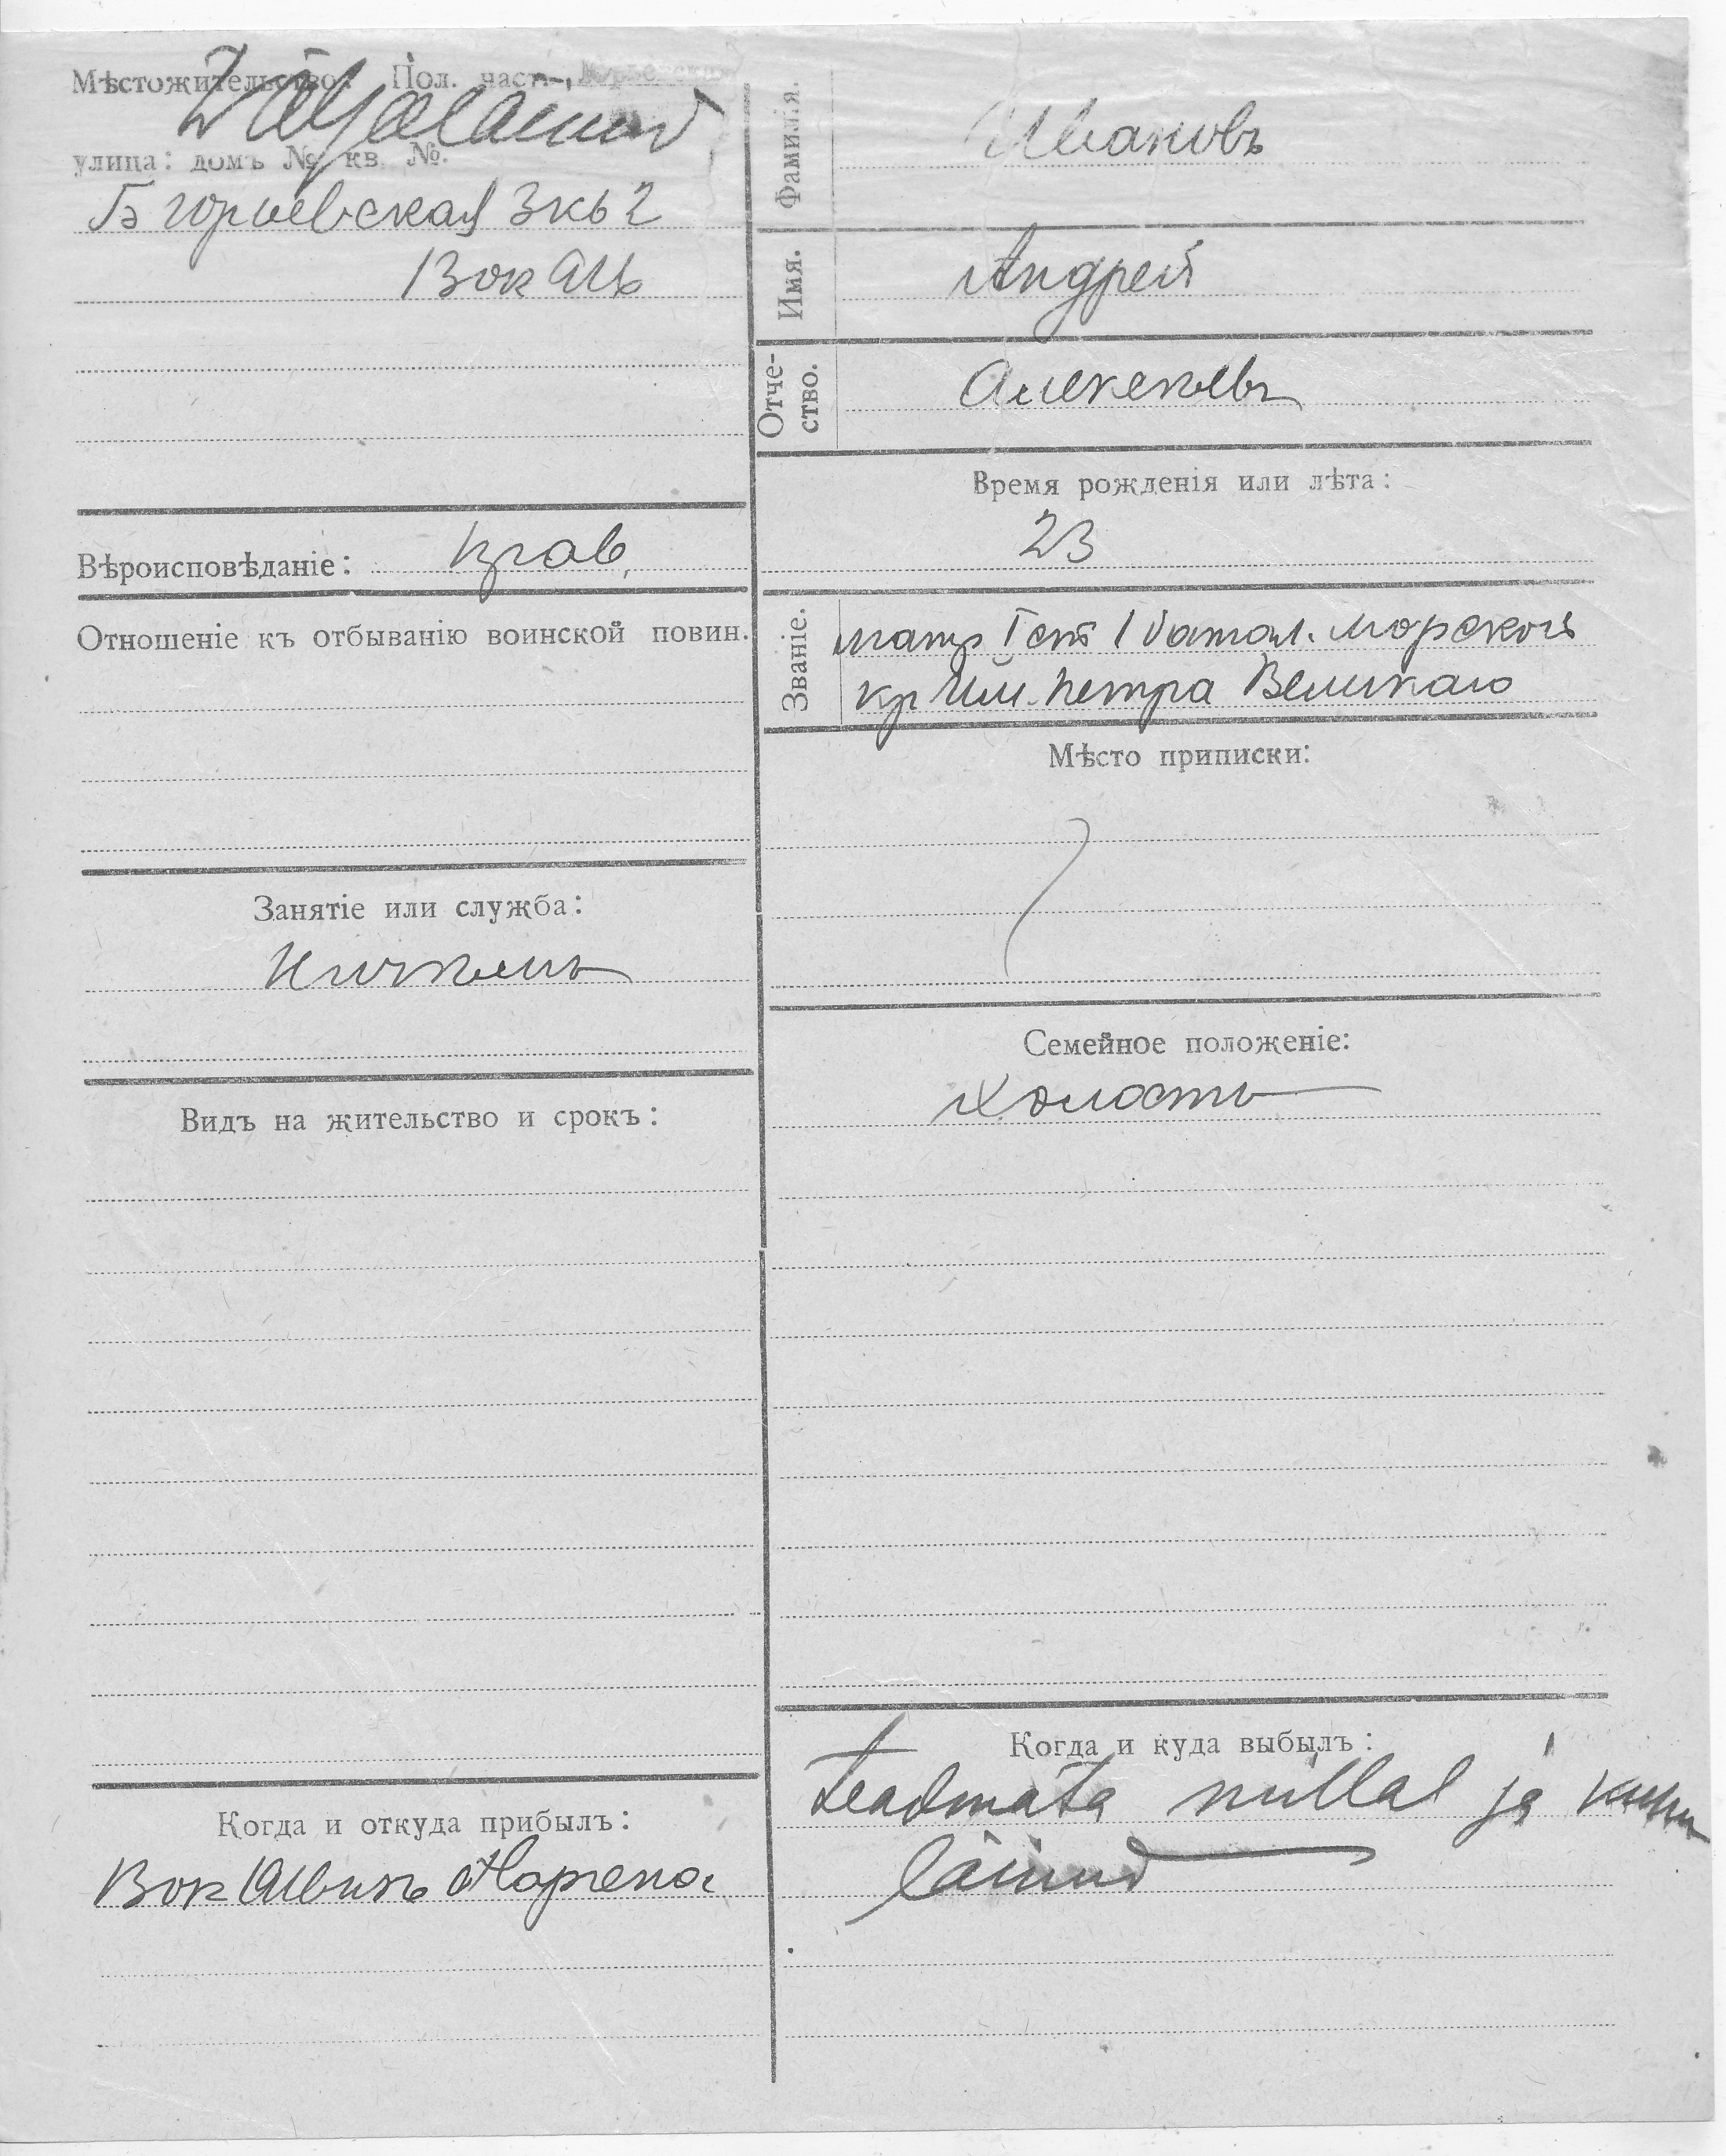 Мѣстожительство: Пол. част.-, Юрьевская
Wäljaläinud
улица: домъ № кв. №.
Б Юрьевская 3 кв 2
13 ок
Фамилія.
Ивановъ
Имя.
Андрей
Отче-
ство.
Алексѣевъ
Время рожденія или лѣта:
23
Вѣроисповѣданіе: прав.
Званіе.
матр I ст 1 батал. морской
кр Им. Петра Великаго
Отношеніе къ отбыванію воинской повин.
Мѣсто приписки:
Занятіе или служба:
Семейное положеніе:
холостъ
Видъ на жительство и срокъ:
Когда и куда выбылъ:
teadmata millal ja kuhu
läinud
Когда и откуда прибылъ:
Наргена